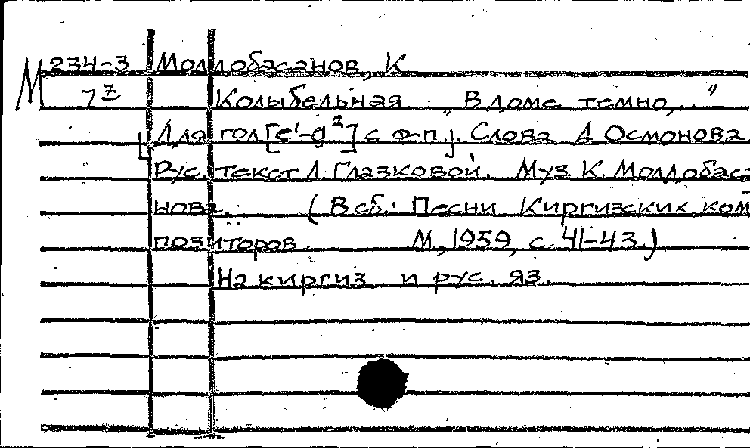 М 234-3 Моллобасанов, К
7 z Колыбельная „В доме темно,.."
[Для гол[e'-g²] с ф-п]. Слова А Осмонова.
Рус. текст Л. Глазковой. Муз К. Моллобаса-
нова. (В сб.: Песни Киргизских ком
позиторов М, 1959, с. 41-43.)
На киргиз и рус. яз.